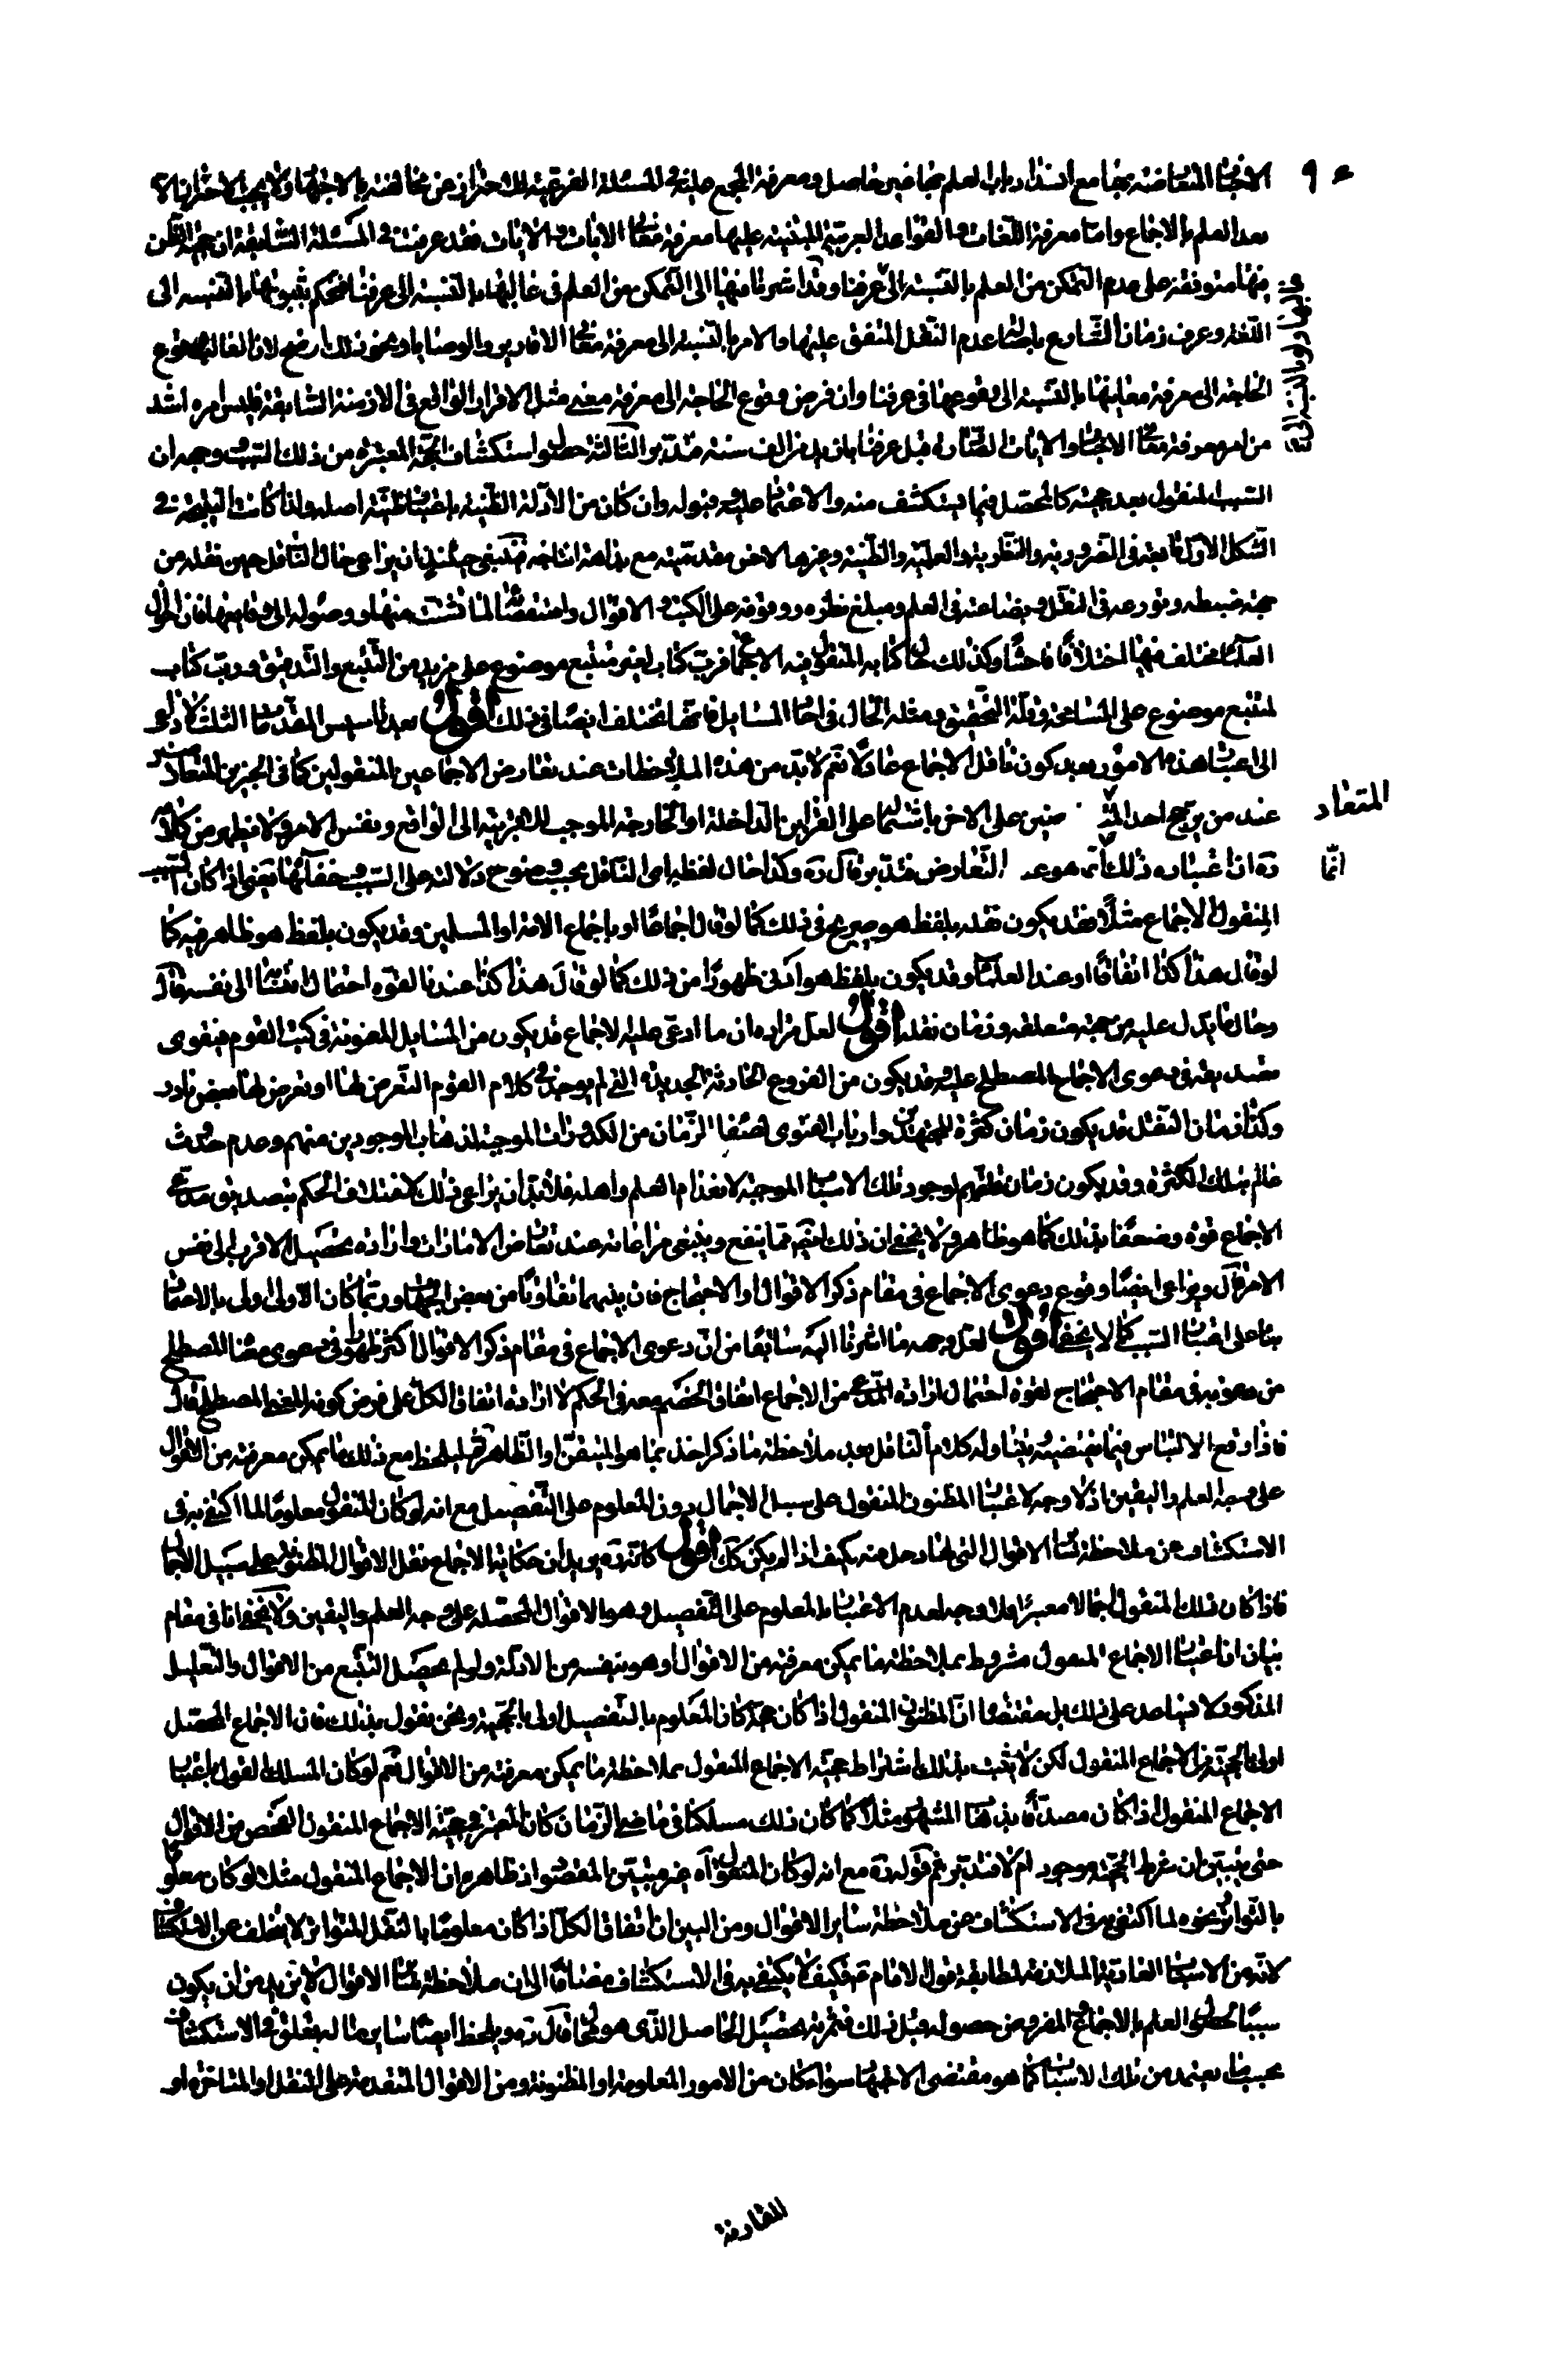 بعد العلم بالاجماع واما معرفة اللغات و القواعد العربية المبتنية عليها معرفة معاني الايات و الايات فقد عرفت في المسئلة السابقة ان حجية الظن
منها متوقفة على عدم التمكن من العلم بالنسبة الى عرفنا وقد اشرنا منها الى التمكن من العلم في غالبها بالنسبة الى عرفنا فنحكم بثبوتها بالنسبة الى
اللغة وعرف زمان الشارع باصالة عدم النقل المتفق عليها والامر بالنسبة الى معرفة معاني الاقارير والوصايا ونحو ذلك اوضح لان الغالب وقوع
الحاجة الى معرفة معانيها بالنسبة الى وقوعها في عرفنا وان فرض وقوع الحاجة الى معرفة معنى مثل الاقرار الواقع في الازمنة السابقة فليس امره اشد
من امر معرفة معاني الاخبار والايات الصادرة قبل عرفنا بازيد من الف سنة فتدبر الثالثة حصول استكشاف الحجة المعتبرة من ذلك السبب وجهه ان
السبب المنقول بعد حجيته كالمحصل فيما يستكشف منه والاعتماد عليه وقبوله وان كان من الادلة الظنية باعتبار ظنية اصله ولذا كانت النتيجة في
الشكل الاول تابعة في الضرورية والنظرية والعلمية والظنية وغيرها لاخس مقدمتيه مع بداهة انتاجه فينبغي حينئذ ان يراعى حال الناقل حين نقله من
جهة ضبطه وتورعه في النقل وبضاعته في العلم ومبلغ نظره ووقوفه على الكتب و الاقوال واستقصائه لما تشتت منها ووصوله الى وقايعها فان احوال
العلماء مختلف فيها اختلافا فاحشا وكذلك حال كتابه المنقول فيه الاجماع فرب كتاب لغير متتبع موضوع على مزيد من التتبع والتدقيق ورب كتاب
لمتتبع موضوع على المسامحة وقلة التحقيق ومثله الحال في احاد المسايل فانها تختلف ايضا في ذلك اقول بعد تاسيس المقدمات الثلث لا داعي
الى اعتبار هذه الامور بعد كون ناقل الاجماع عادلا نعم لا بد من هذه الملاحظات عند تعارض الاجماعين المنقولين كما في الخبرين المتعارضين
عند من يرجح احد المتعارضين على الاخر باشتماله على القراين الداخلة او الخارجة الموجب للاقربية الى الواقع ونفس الامر ولا يظهر من كلامه
ره ان اعتباره ذلك انما هو عند التعارض فتدبر قال ره وكذا حال لفظه اي الناقل بحسب وضوح دلالته على السبب وخفائها يعني اذا كان السبب
المنقول الاجماع مثلا فقد يكون نقله بلفظ هو صريح في ذلك كما لو قال اجماعا او باجماع الامة او المسلمين وقد يكون بلفظ هو ظاهر فيه كما
لو قال هذا كذا اتفاقا او عند العلماء وقد يكون بلفظ هو ادنى ظهورا من ذلك كما لو قال هذا كذا عندنا لقوة احتمال انتسابنا الى نفسه قال
وحال ما يدل عليه من جهة متعلقه وزمان نقله اقول لعل مراده ان ما ادعى عليه الاجماع قد يكون من المسايل المعنونة في كتب القوم فيقوى
تصديقه في دعوى الاجماع المصطلح عليه وقد يكون من الفروع الحادثة الجديدة التي لم يوجد في كلام القوم التعرض لها او تعرض لها بعض نادر
وكذا زمان النقل قد يكون زمان كثرة المجتهدين وارباب الفتوى لصفاء الزمان من الكدورات الموجبة لذهاب الموجودين منهم وعدم حدوث
عالم بتلك الكثرة وقد يكون زمان قلتهم لوجود تلك الاسباب الموجبة لانعدام العلم واهله فلا بد ان يراعى ذلك لاختلاف الحكم بتصديق مدعي
الاجماع قوة وضعفا بذلك كما هو ظاهر ولا يخفى ان ذلك ايضا مما ينفع وينبغي مراعاته عند تعارض الامارات وارادة تحصيل الاقرب الى نفس
الامر قال ويراعى ايضا وقوع دعوى الاجماع في مقام ذكر الاقوال او الاحتجاج فان بينهما تفاوتا من بعض الجهات وربما كان الاول اولى بالاعتماد
بناء على اعتبار السبب كما لا يخفى اقول لعل وجهه ما اشرنا اليه سابقا من ان دعوى الاجماع في مقام ذكر الاقوال اكثر ظهورا في دعوى معناه المصطلح
من دعويه في مقام الاحتجاج لقوة احتمال ارادة المدعي من الاجماع اتفاق الخصم معه في الحكم لا ارادة اتفاق الكل على فرض كونه المعنى المصطلح قال
فاذا وقع الالتباس فيما يقتضيه ويتناوله كلام الناقل بعد ملاحظة ما ذكر اخذ بما هو المتيقن او الظاهر ثم ليلحظ مع ذلك ما يمكن معرفته من الاقوال
على وجه العلم واليقين اذ لا وجه لاعتبار المظنون المنقول على سبيل الاجمال دون المعلوم على التفصيل مع انه لو كان المنقول معلوما لما اكتفى به في
الاستكشاف عن ملاحظة ساير الاقوال التي لها دخل فيه فكيف اذا لم يكن كك اقول كانه ره يريد ان حكاية الاجماع نقل الاقوال المظنونة على سبيل الاجمال
فاذا كان ذلك المنقول اجمالا معتبرا فلا وجه لعدم الاعتبار بالمعلوم على التفصيل وهو الاقوال المحصلة على وجه العلم واليقين ولا يخفى انا في مقام
بيان ان اعتبار الاجماع المنقول مشروط بملاحظة ما يمكن معرفته من الاقوال او هو بنفسه من الادلة ولو لم يحصل التتبع من الاقوال والتعليل
المذكور لا يساعد على ذلك بل مقتضاه ان المظنون المنقول اذا كان حجة كان المعلوم بالتفصيل اولى بالحجية ونحن نقول بذلك فان الاجماع المحصل
اولى بالحجية من الاجماع المنقول لكن لا يثبت بذلك اشتراط حجية الاجماع المنقول بملاحظة ما يمكن معرفته من الاقوال نعم لو كان المسلك القول باعتبار
الاجماع المنقول اذا كان مصدقا بذهاب المشهور مثلا كما كان ذلك مسلكنا في ماضي الزمان كان المعتبر في حجية الاجماع المنقول الفحص من الاقوال
حتى يتبين ان شرط الحجية موجود ام لا فتدبر ثم قوله ره مع انه لو كان المنقول اه غير مبين المقصود اذ ظاهره ان الاجماع المنقول مثلا لو كان معلوما
بالتواتر ونحوه لما اكتفى به في الاستكشاف عن ملاحظة ساير الاقوال ومن البين ان اتفاق الكل اذا كان معلوما بالنقل المتواتر لا يتخلف عن الاستكشاف
لانه من الاسباب العادية الملازمة لمطابقة قول الامام ع فكيف لا يكتفى به في الاستكشاف مضافا الى ان ملاحظة ساير الاقوال لا يزيد من ان يكون
سببا لحصول العلم بالاجماع المفروض حصوله قبل ذلك فثمرته تحصيل الحاصل الذي هو محال قال ره ويلحظ ايضا ساير ما له تعلق في الاستكشاف
بحسب ما يعتمد من تلك الاسباب كما هو مقتضى الاجتهاد سواء كان من الامور المعلومة او المظنونة ومن الاقوال المتقدمة على النقل او المتاخرة او
المقارنة
المتعاد
انما